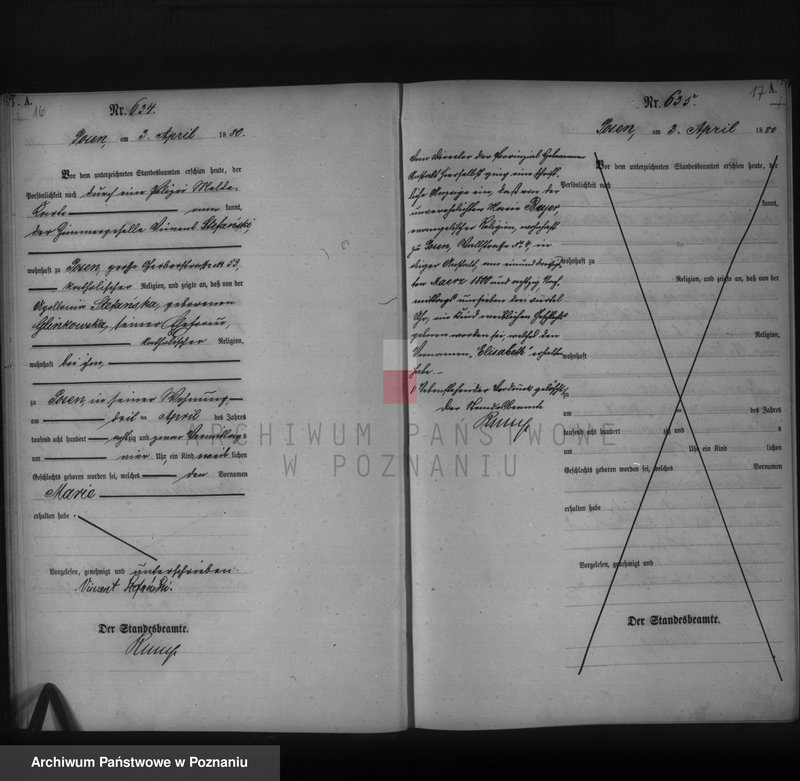 A.
16
Nr. 634.
Posen, am 3. April 1880.
Vor dem unterzeichneten Standesbeamten erschien heute, der
Persönlichkeit nach durch eine Melde-
Karte kannt,
der Zimmergeselle Vincent Stefański,
wohnhaft zu Posen, große Gerberstraße № 53,
katholischer Religion, und zeigte an, daß von der
Apollonia Stefańska, geborenen
Glinkowska, seiner Ehefrau,
katholischer Religion,
wohnhaft bei ihm,
zu Posen, in seiner Wohnung,
am April des Jahres
tausend acht hundert achtzig und zwar Vormittags
um vier Uhr ein Kind weiblichen
Geschlechts geboren worden sei, welches den Vornamen
Marie
erhalten habe.
Vorgelesen, genehmigt und unterschrieben.
Vincent Stefański.
Der Standesbeamte.
17
A.
Nr. 635.
Posen, am 3. April 1880
Vom Director der Provinzial Hebammen
Anstalt hierselbst ging eine schrift-
liche Anzeige ein, daß von der
unverehelichten Marie Beyer,
evangelischer Religion, wohnhaft
zu Posen, Wallstraße № 4, in
Anstalt, am ein und dreißig-
ten Maerz 1880 und achtzig Nach-
mittags um sieben drei viertel
Uhr, ein Kind weiblichen Geschlechts
geboren worden sei, welches den
Vornamen "Elisabeth" erhalten
habe.
Nebenstehender Vordruck gelöscht.
Der Standesbeamte
Vor dem unterzeichneten Standesbeamten erschien heute, der
Persönlichkeit nach
kannt,
wohnhaft zu
Religion, und zeigte an, daß von der
Religion,
wohnhaft
zu
am des Jahres
tausend acht hundert zig und
um Uhr ein Kind lichen
Geschlechts geboren worden sei, welches Vornamen
erhalten habe
Vorgelesen, genehmigt und
Der Standesbeamte.
ARCHIWUM PAŃSTWOWE
W POZNANIU
Archiwum Państwowe w Poznaniu